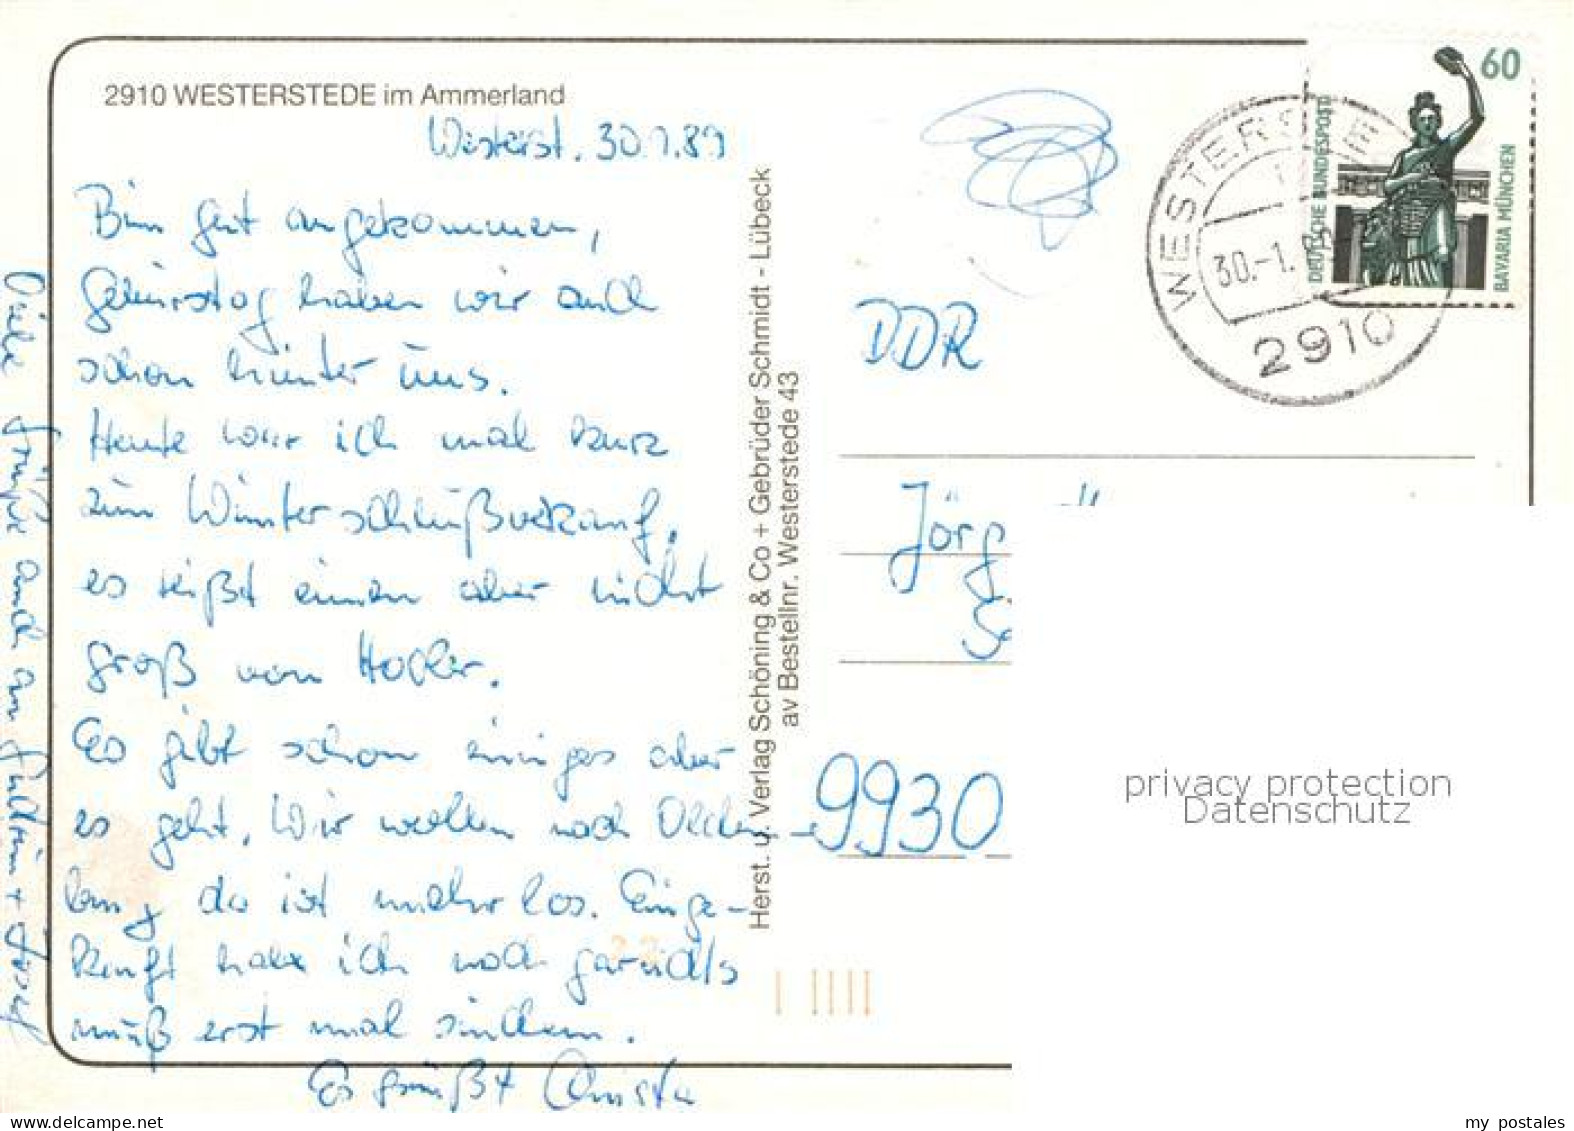 2910 WESTERSTEDE im Ammerland
Westerst. 30.1.89
Bin gut angekommen,
Geburtstag haben wir auch
schon hinter uns.
Heute war ich mal kurz
zum Winterschlußverkauf,
es reißt einen aber nicht
groß vom Hocker.
Es gibt schon einiges aber
es geht. Wir wollen nach Olden-
burg da ist mehr los. Einge-
kauft habe ich noch garnichts
muß erst mal sichten.
Es grüßt Christa
Viele Grüße auch an
Herst. u. Verlag Schöning & Co + Gebrüder Schmidt - Lübeck
av Bestellnr. Westerstede 43
DDR
WESTERSTEDE 1
30.-1.
2910
60
DEUTSCHE BUNDESPOST
BAVARIA MÜNCHEN
Jörg
9930
privacy protection
Datenschutz
my postales